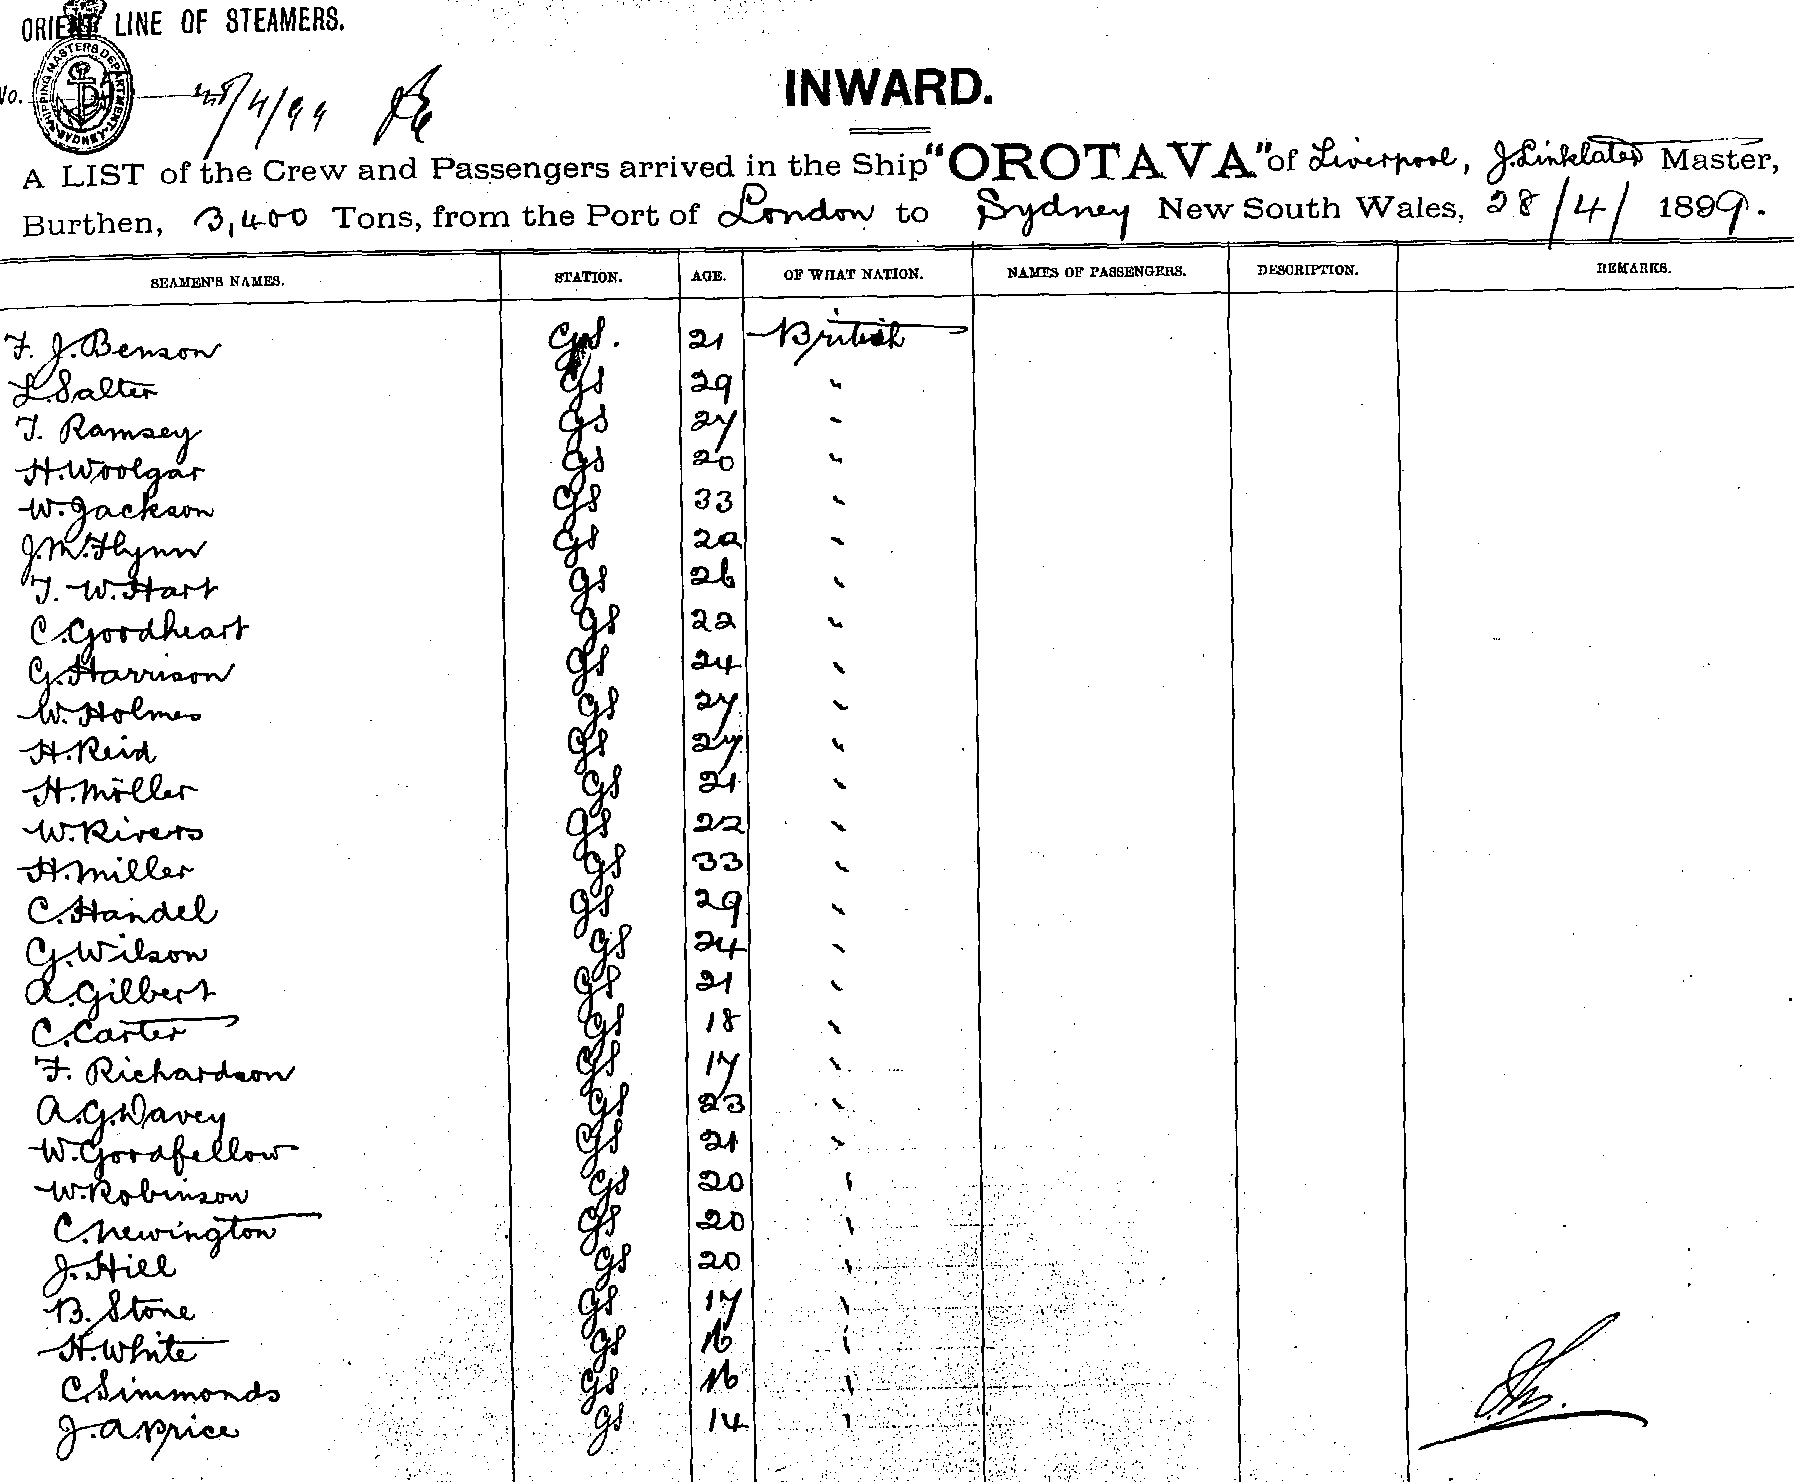 ORIENT LINE OF STEAMERS.
No.
SHIPPING MASTERS DEPARTMENT SYDNEY
28/4/99
INWARD.
A LIST of the Crew and Passengers arrived in the Ship "OROTAVA" of Liverpool, J. Linklater Master,
Burthen, 3,400 Tons, from the Port of London to Sydney New South Wales, 28/4/1899.
SEAMEN'S NAMES. STATION. AGE. OF WHAT NATION. NAMES OF PASSENGERS. DESCRIPTION. REMARKS.
F. J. Benson GS. 21 British
L. Salter GS 29 "
T. Ramsey GS 27 "
H. Woolgar GS 20 "
W. Jackson GS 33 "
J. M. Flynn GS 20 "
T. W. Hart GS 26 "
C. Goodheart GS 22 "
G. Harrison GS 24 "
W. Holmes GS 27 "
H. Reid GS 27 "
H. Möller GS 21 "
W. Rivers GS 22 "
H. Miller GS 33 "
C. Handel GS 29 "
G. Wilson GS 24 "
A. Gilbert GS 21 "
C. Carter GS 18 "
F. Richardson GS 17 "
A. G. Davey GS 23 "
W. Goodfellow GS 21 "
W. Robinson GS 20 "
C. Newington GS 20 "
J. Hill GS 20 "
B. Stone GS 17 "
H. White GS 16 "
C. Simmonds GS 16 "
J. A Price GS 14 "